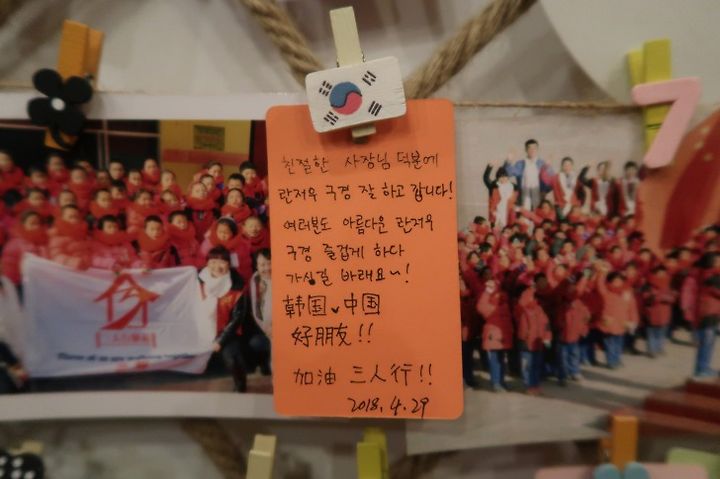 친절한 사장님 덕분에
란저우 구경 잘 하고 갑니다!
여러분도 아름다운 란저우
구경 즐겁게 하다
가싱길 바래요~!
韩国、中国
好朋友!!
加油 三人行!!
2018.4.29
7